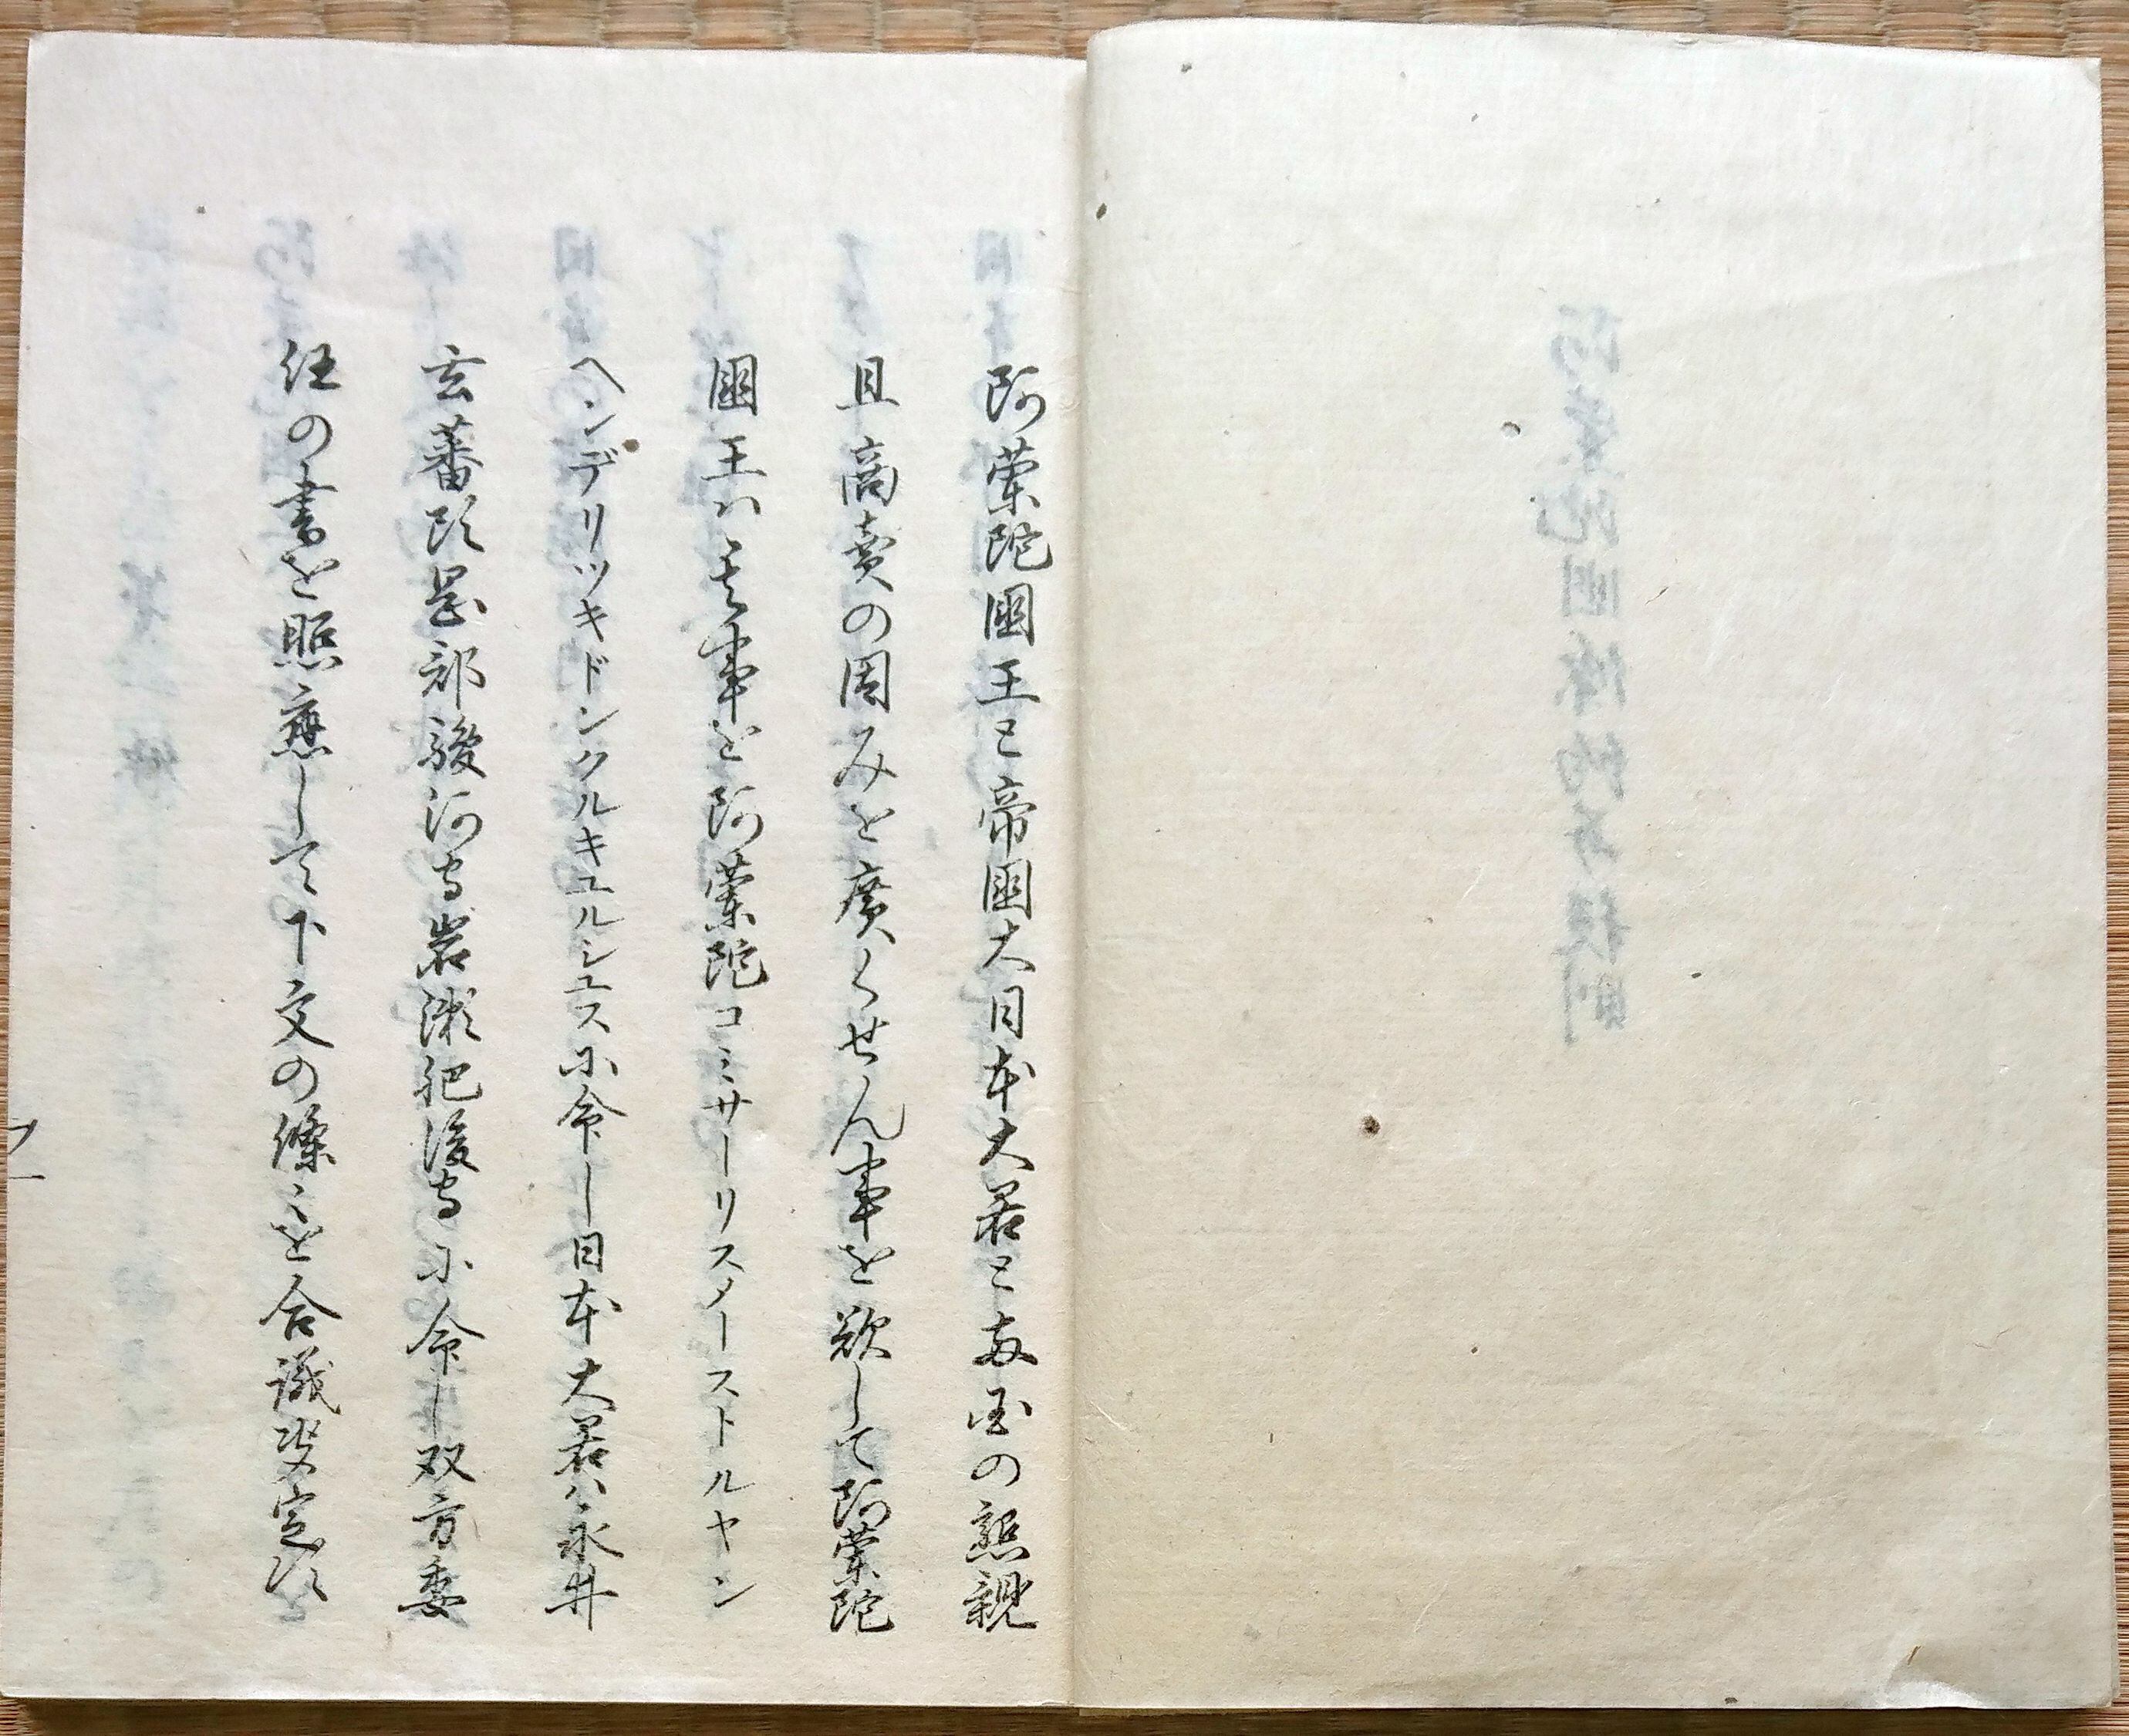 阿蘭陀國王と帝國大日本大君と両国の懇親
且商賣の因みを廣くせん事を欲して阿蘭陀
國王ハ其事を阿蘭陀コミサーリスターストルヤン
ヘンデリツキドンクルキユルシユス小命し日本大君ハ永井
玄蕃頭岡部駿河守岩瀬肥後守小命し双方委
任の書を照應して下文の條〻を合議決定須